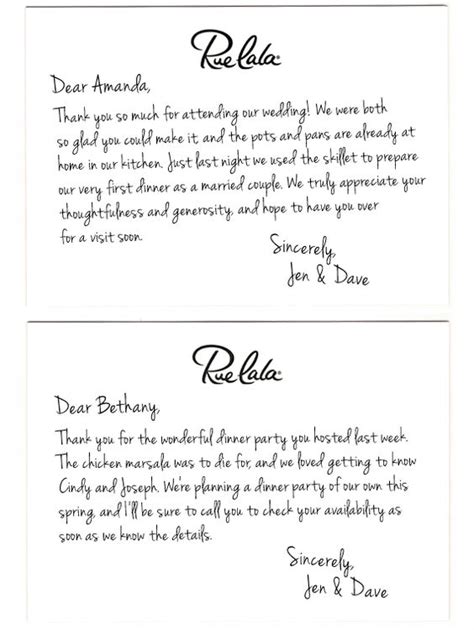 Rue La La
Dear Amanda,
Thank you so much for attending our wedding! We were both
so glad you could make it and the pots and pans are already at
home in our kitchen. Just last night we used the skillet to prepare
our very first dinner as a married couple. We truly appreciate your
thoughtfulness and generosity, and hope to have you over
for a visit soon.
Sincerely,
Jen & Dave
Rue La La
Dear Bethany,
Thank you for the wonderful dinner party you hosted last week.
The chicken marsala was to die for, and we loved getting to know
Cindy and Joseph. We're planning a dinner party of our own this
spring, and I'll be sure to call you to check your availability as
soon as we know the details.
Sincerely,
Jen & Dave